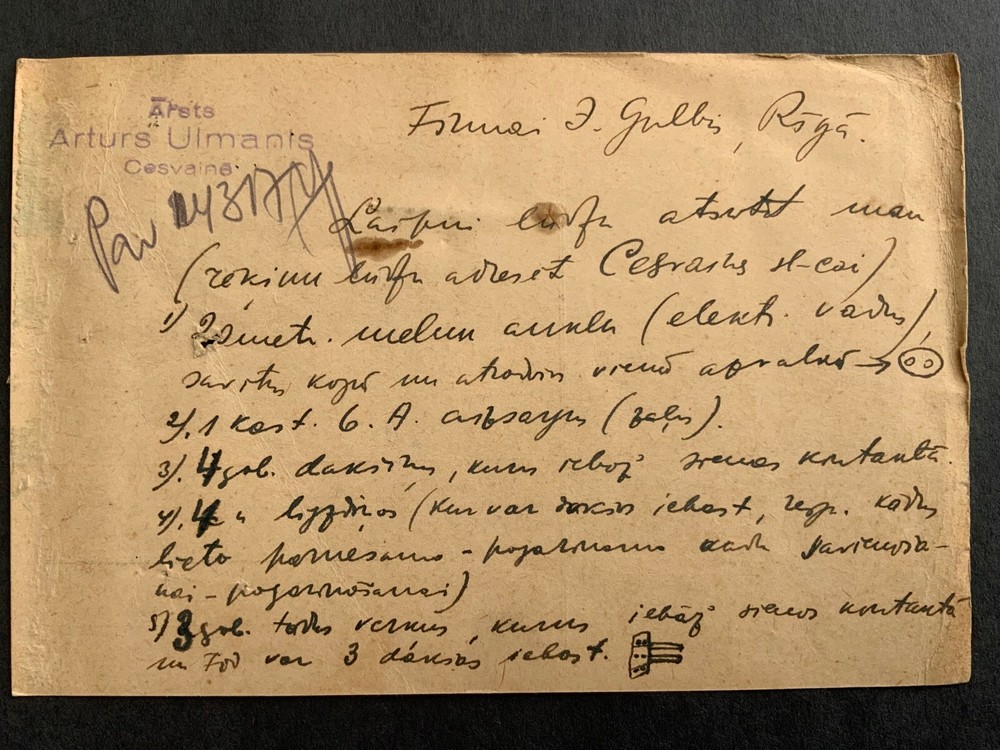 Ārsts
Arturs Ulmanis
Cesvainē
Firmai J. Gulbis, Rīgā.
Laipni lūdzu atsūtīt man
(rēķinu lūdzu adresēt Cesvaines sl-cai)
1) 20 metr. melnu auklu (elektr. vadus),
savītus kopā un atrodas vienā apvalkā →
2). 1 kast. 6. A. aizsargus (zaļus).
3). 4 gab. dakšiņas, kuras iebāž sienas kontaktā.
4). 4 " ligzdiņas (kur var dakšas iebāzt, resp. kādas
lieto pārnēsamo - pagarināmo vadu savienoša-
nai - pagarināšanai)
5) 3 gab. tādus, kurus iebāž sienas kontaktā
un tad var 3 dakšas iebāzt.